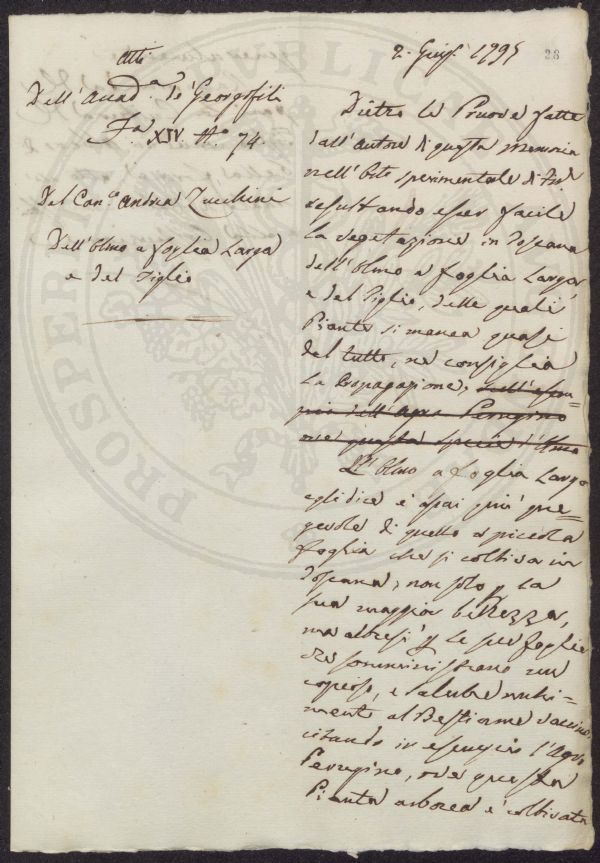 Atti
Dell'Accad.ª de' Georgofili
Fa. XIV N.º 74.
Del Can.co Andrea Zucchini
Dell'Olmo a foglia larga
e del Tiglio
2. Giug.º 1795
28
Dietro le Pruove fatte
dall'autore di questa memoria
nell'Orto sperimentale di
resultando esser facile
la vegetazione in Toscana
dell'Olmo a foglia larga,
e del Tiglio, delle quali
Piante si manca quasi
del tutto, ne consiglia
la Propagazione, sull'esem=
pio dell'Agro Perugino
ove questa specie d'Olmo
L'Olmo a foglia larga
egli dice è assai più pre=
gevole di quello a piccola
foglia che si coltiva in
Toscana, non solo p la
sua maggior bellezza,
ma altresì p le sue foglie
che somministrano un
copioso, e salubre nutri=
mento al Bestiame vaccino,
citando in esempio l'Agro
Perugino, ove questa
Pianta arborea è coltivata
PROSPERITÀ PUBBLICA